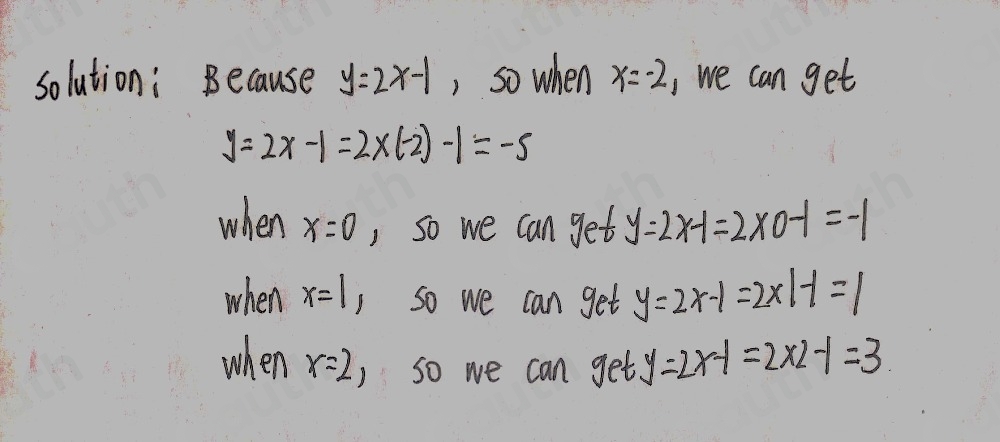 Solution: Because y=2x-1, so when x=-2, we can get
y=2x-1=2×(-2)-1=-5
when x=0, so we can get y=2x-1=2×0-1=-1
when x=1, so we can get y=2x-1=2×1-1=1
when x=2, so we can get y=2x-1=2×2-1=3.